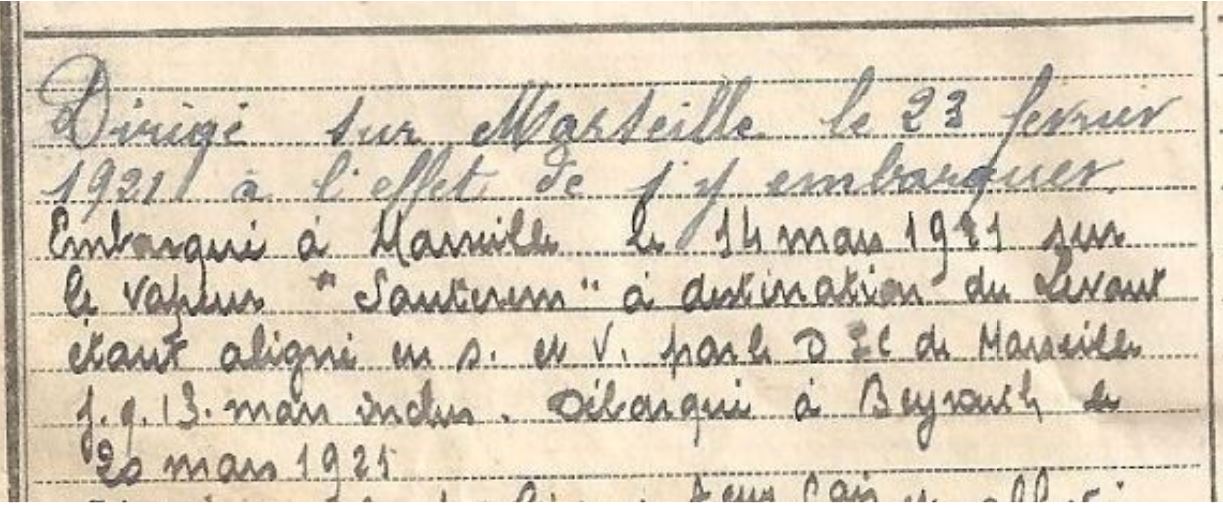 Dirigé sur Marseille le 23 fevrier
1921 à l'effet de s'y embarquer.
Embarqué à Marseille le 14 mars 1921 sur
le vapeur " " à destination du Levant
étant aligné en s. et V. par le D I C de Marseille
j. q. 13. mars inclus. Débarqué à Beyrouth le
20 mars 1921